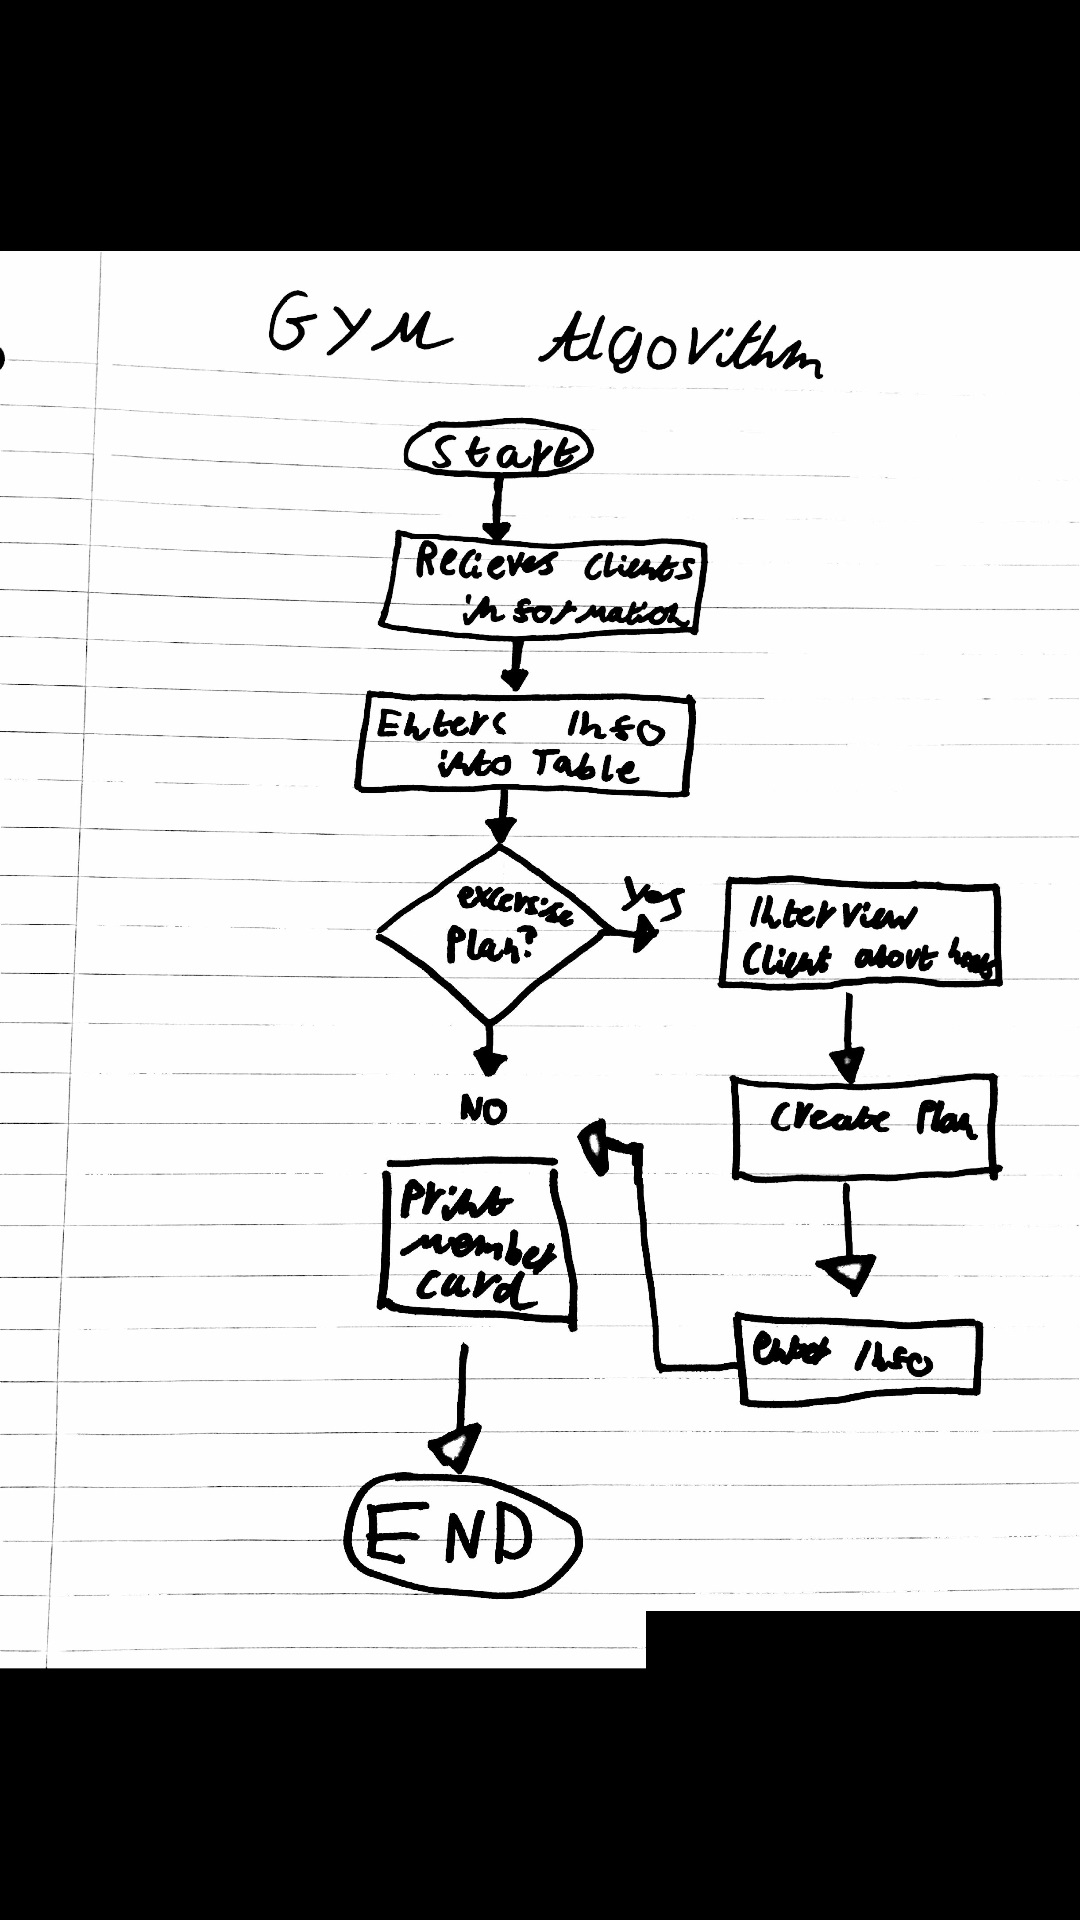 GYM Algorithm
Start
Recieves Clients
information
Enters Info
into Table
excersise
Plan?
Yes
Interview
Client about
Create Plan
NO
Print
member
card
enter Info
END